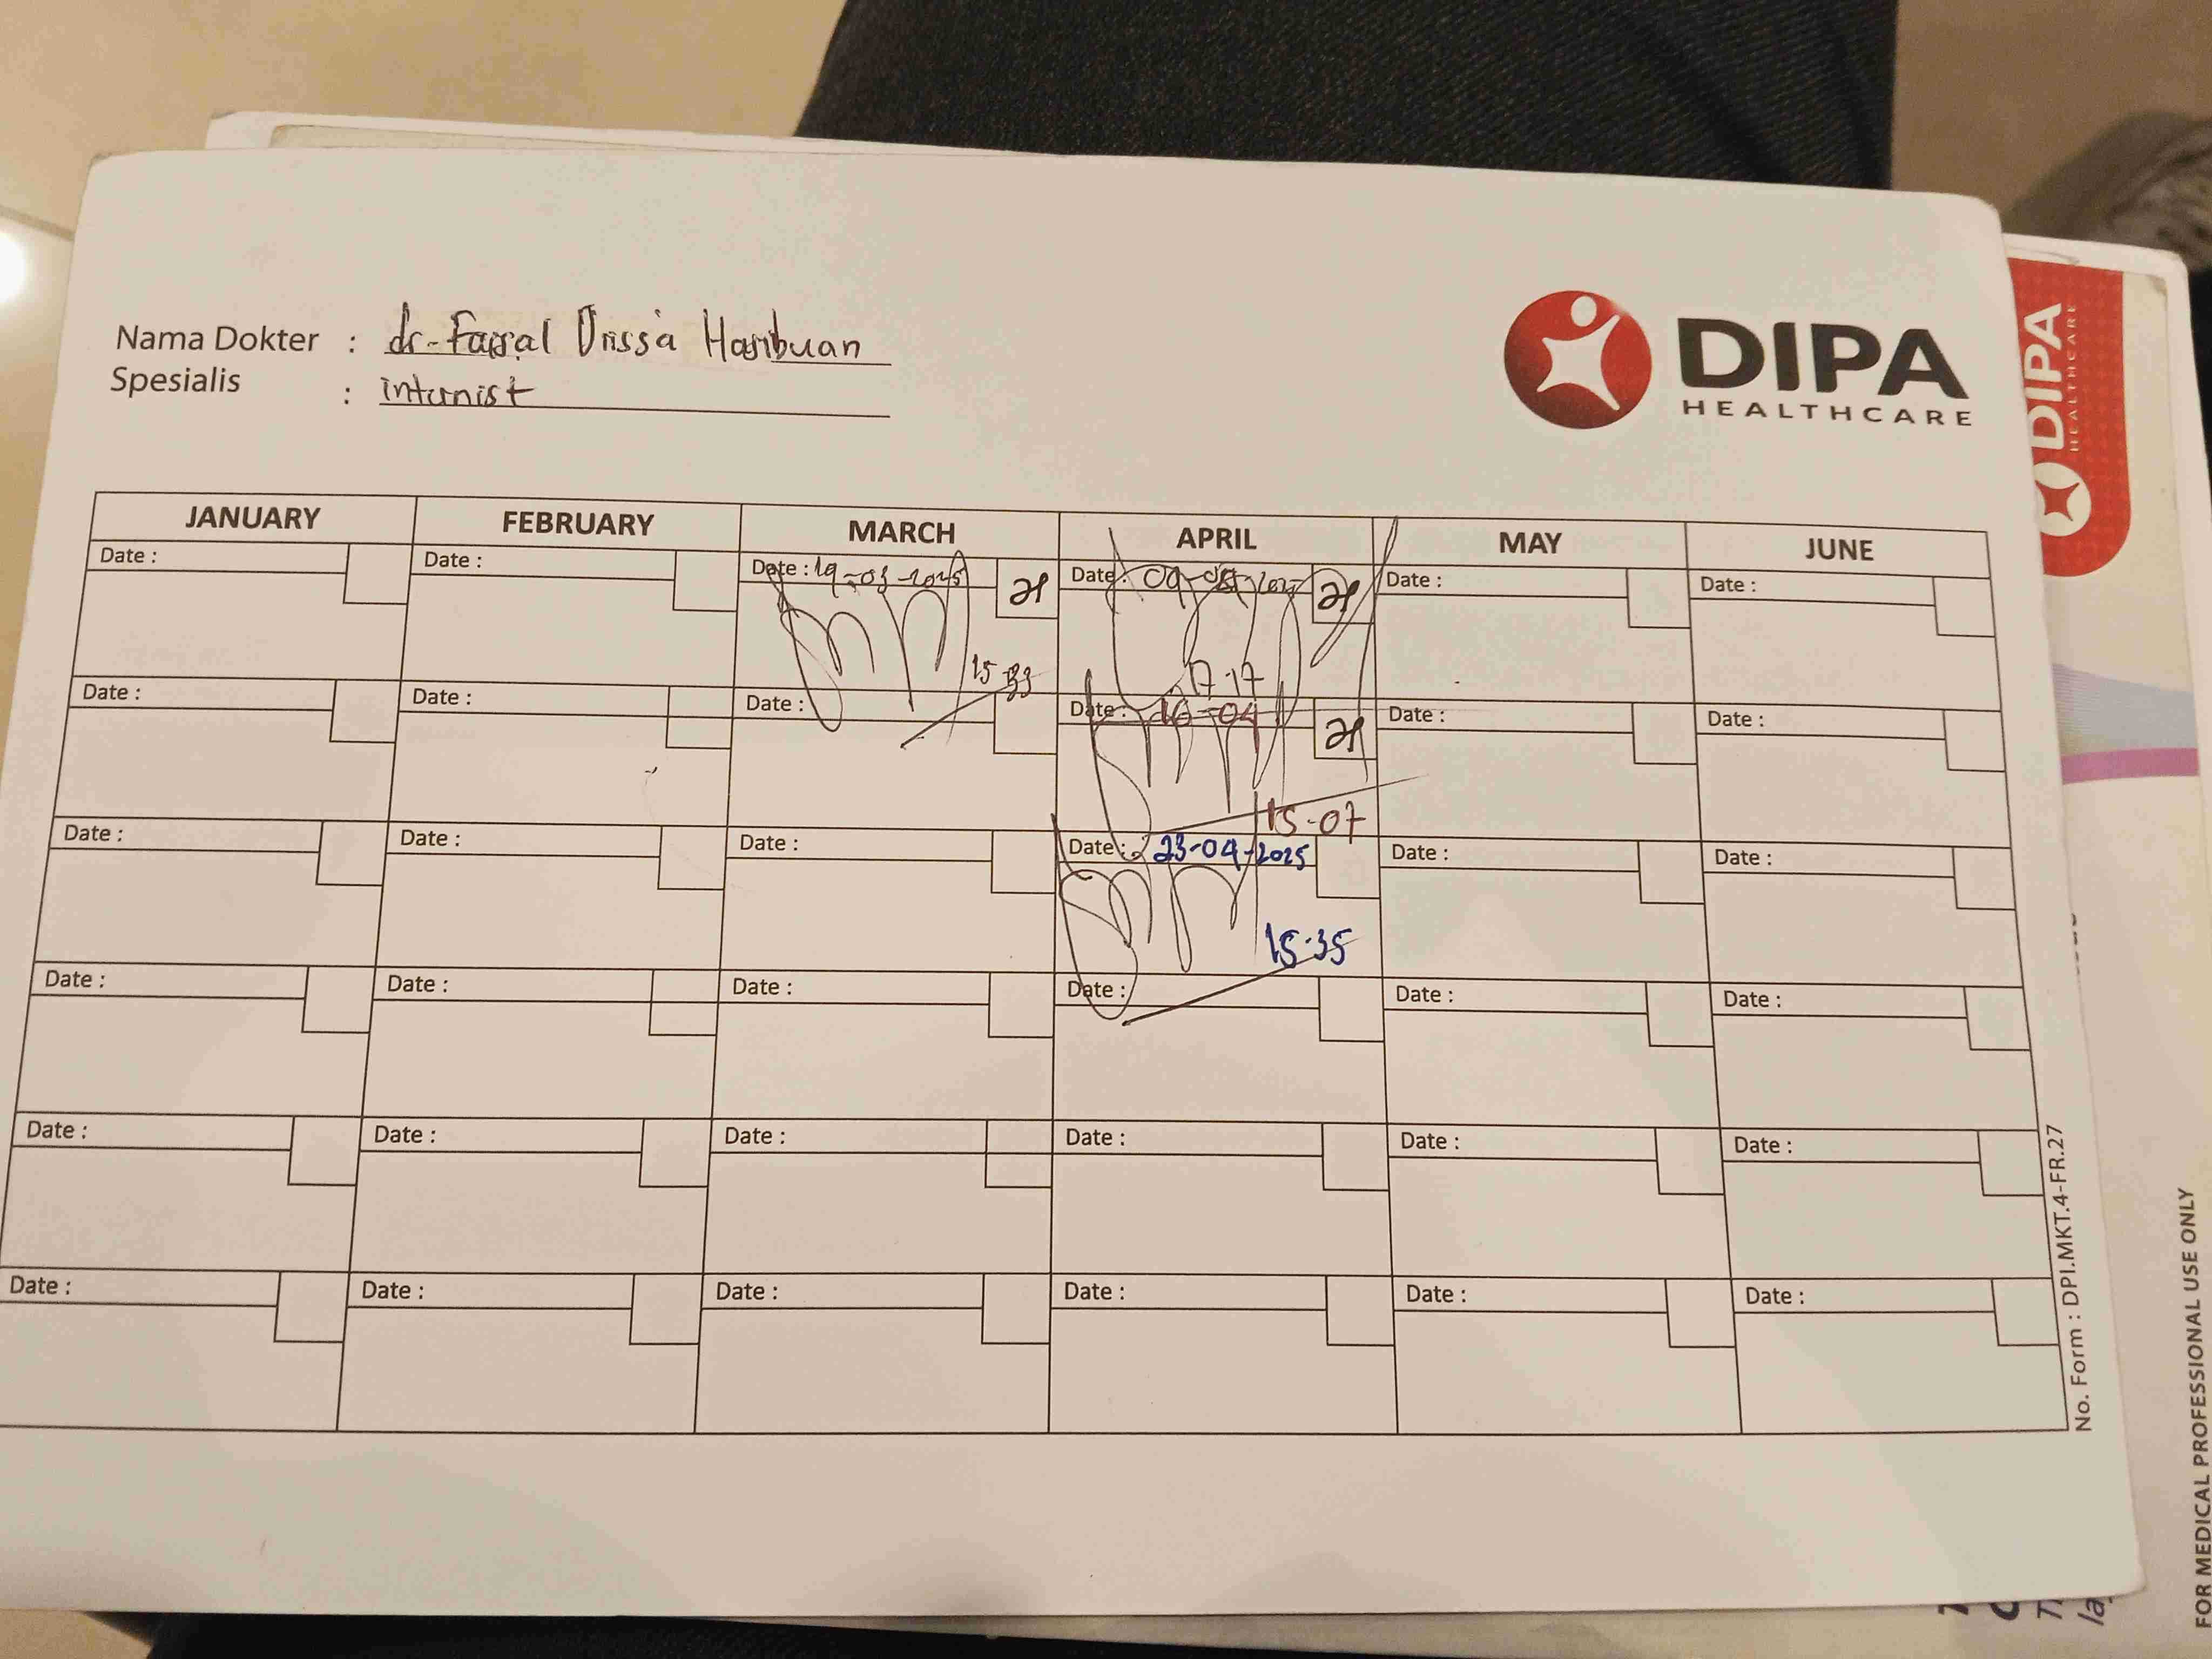 Nama Dokter : dr. Faisal Drissa Hasibuan
Spesialis : internist
DIPA
HEALTHCARE
DIPA
HEALTHCARE
JANUARY FEBRUARY MARCH APRIL MAY JUNE
Date : Date : Date : 19-03-2025 Date : 09-04-2025 Date : Date :
15 33 17.17
Date : Date : Date : Date : 16-04 Date : Date :
15-07
Date : Date : Date : Date : 23-04-2025 Date : Date :
15.35
Date : Date : Date : Date : Date : Date :
Date : Date : Date : Date : Date : Date :
Date : Date : Date : Date : Date : Date :
No. Form : DPI.MKT.4-FR.27
FOR MEDICAL PROFESSIONAL USE ONLY